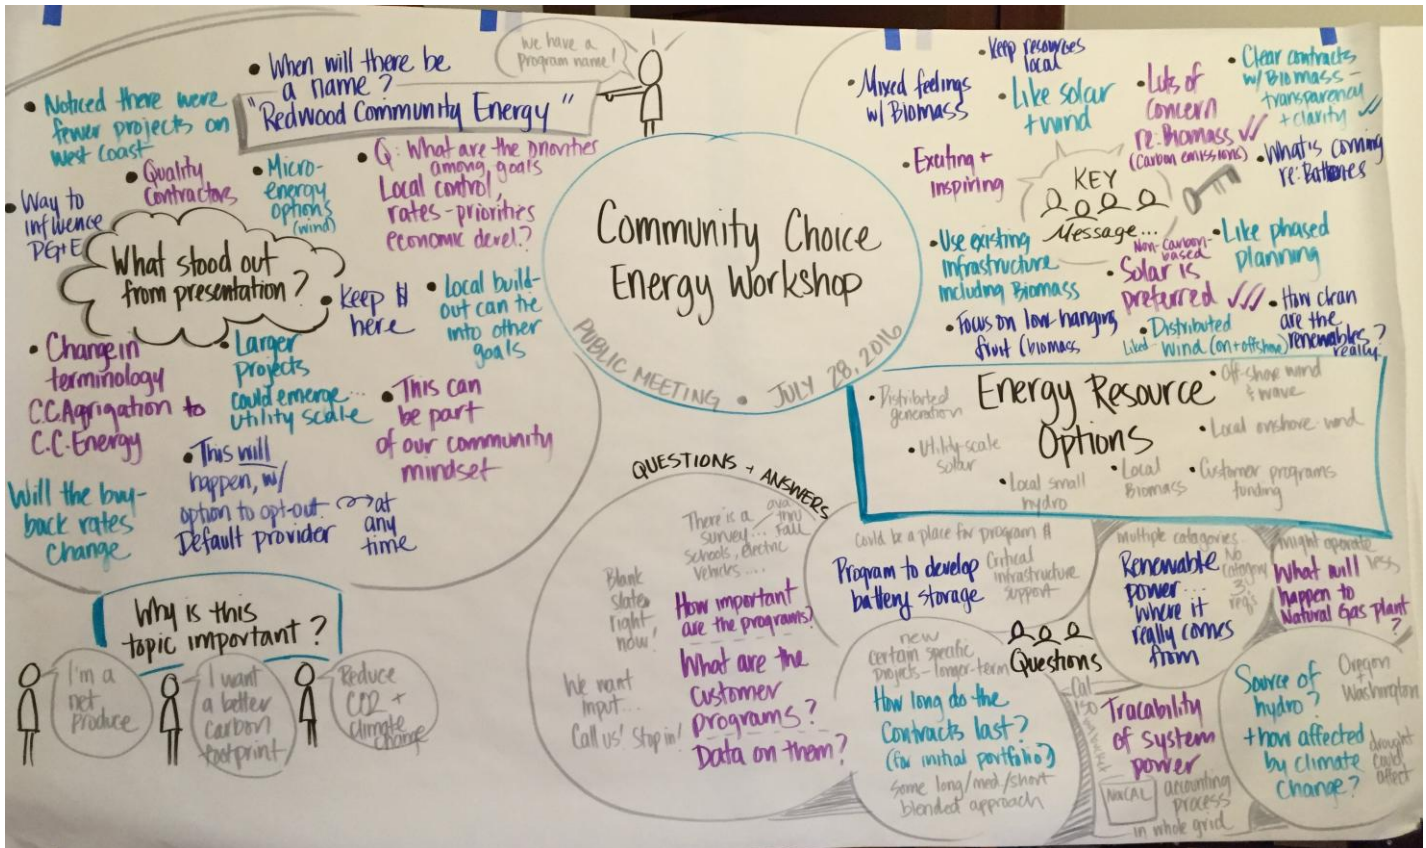 we have a
program name!
• When will there be
a name?
"Redwood Community Energy"
• Noticed there were
fewer projects on
west coast
• Quality
Contractors
• Micro-
energy
options
(wind)
• Q: What are the priorities
among goals
Local control,
rates-priorities
economic devel.?
• Way to
influence
PG+E
What stood out
from presentation?
• Keep $
here
• Local build-
out can tie
into other
goals
• Change in
terminology
C.C.Agrigation to
C.C.Energy
• Larger
Projects
could emerge...
utility scale
• This can
be part
of our community
mindset
Will the buy-
back rates
change
• This will
happen, w/
option to opt-out → at
any
time
Default provider
Why is this
topic important?
I'm a
net
produce
I want
a better
carbon
footprint
Reduce
CO2 +
climate
change
Community Choice
Energy Workshop
PUBLIC MEETING • JULY 28, 2016
• Mixed feelings
w/ Biomass
• Keep resources
local
• Like solar
+ wind
• Lots of
concern
re: Biomass ✓✓
(Carbon emissions)
• Clear contracts
w/ Biomass -
transparency
+ clarity ✓
• Exciting +
Inspiring
KEY
Message...
• What is coming
re: Batteries
• Use existing
infrastructure
including Biomass
Non-carbon-
based
• Solar is
preferred ✓✓✓
• Like phased
planning
• Focus on low-hanging
fruit (biomass
• Distributed
Liked wind (on+offshore)
• How clean
are the
renewables?
really
Energy Resource
Options
• Distributed
generation
• Utility-scale
solar
• Local small
hydro
• Local
Biomass
• Off-shore wind
& wave
• Local onshore wind
• Customer programs
funding
QUESTIONS + ANSWERS
There is a
survey... thru
Fall
schools, electric
vehicles....
Blank
slate
right
now!
How important
are the programs?
We want
input...
Call us! Stop in!
What are the
customer
programs?
Data on them?
Could be a place for program $
Program to develop
battery storage
Critical
infrastructure
support
Questions
new
certain specific
projects - longer-term
How long do the
Contracts last?
(for initial portfolio?)
Some long/med./short
blended approach
multiple catagories
Renewable
power...
where it
really comes
from
No
category
3
req's
might operate
less
What will
happen to
Natural Gas plant
?
Cal
ISO
Tracability
of system
power
NorCAL
accounting
process
in whole grid
Source of
hydro?
+ how affected
by climate
change?
Oregon
+
Washington
drought
could
affect